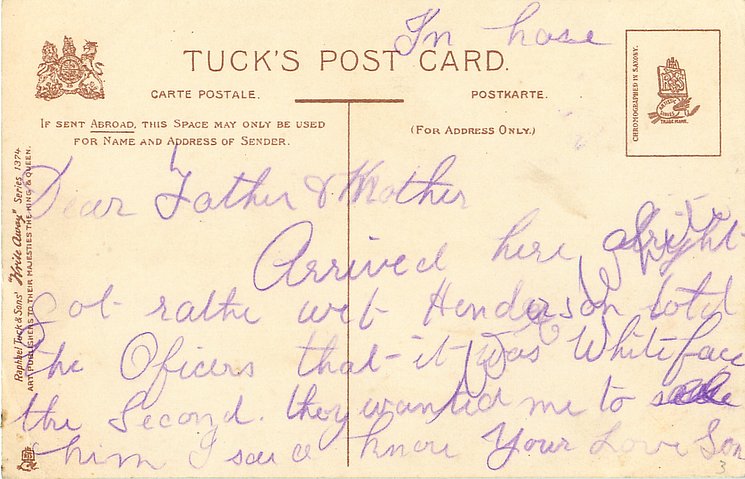 In hase
TUCK'S POST CARD.
CARTE POSTALE.
POSTKARTE.
CHROMOGRAPHED IN SAXONY.
R T & S
ARTISTIC SERIES
TRADE MARK.
IF SENT ABROAD, THIS SPACE MAY ONLY BE USED
FOR NAME AND ADDRESS OF SENDER.
(FOR ADDRESS ONLY.)
Raphael Tuck & Sons' "Write Away" Series 1374.
ART PUBLISHERS TO THEIR MAJESTIES THE KING & QUEEN.
Dear Father & Mother
Arrived here alright
Got rathe wet Henderson totd
the Oficers that it was Whiteface
the Second. they wanted me to
him I said know Your Love Son
3